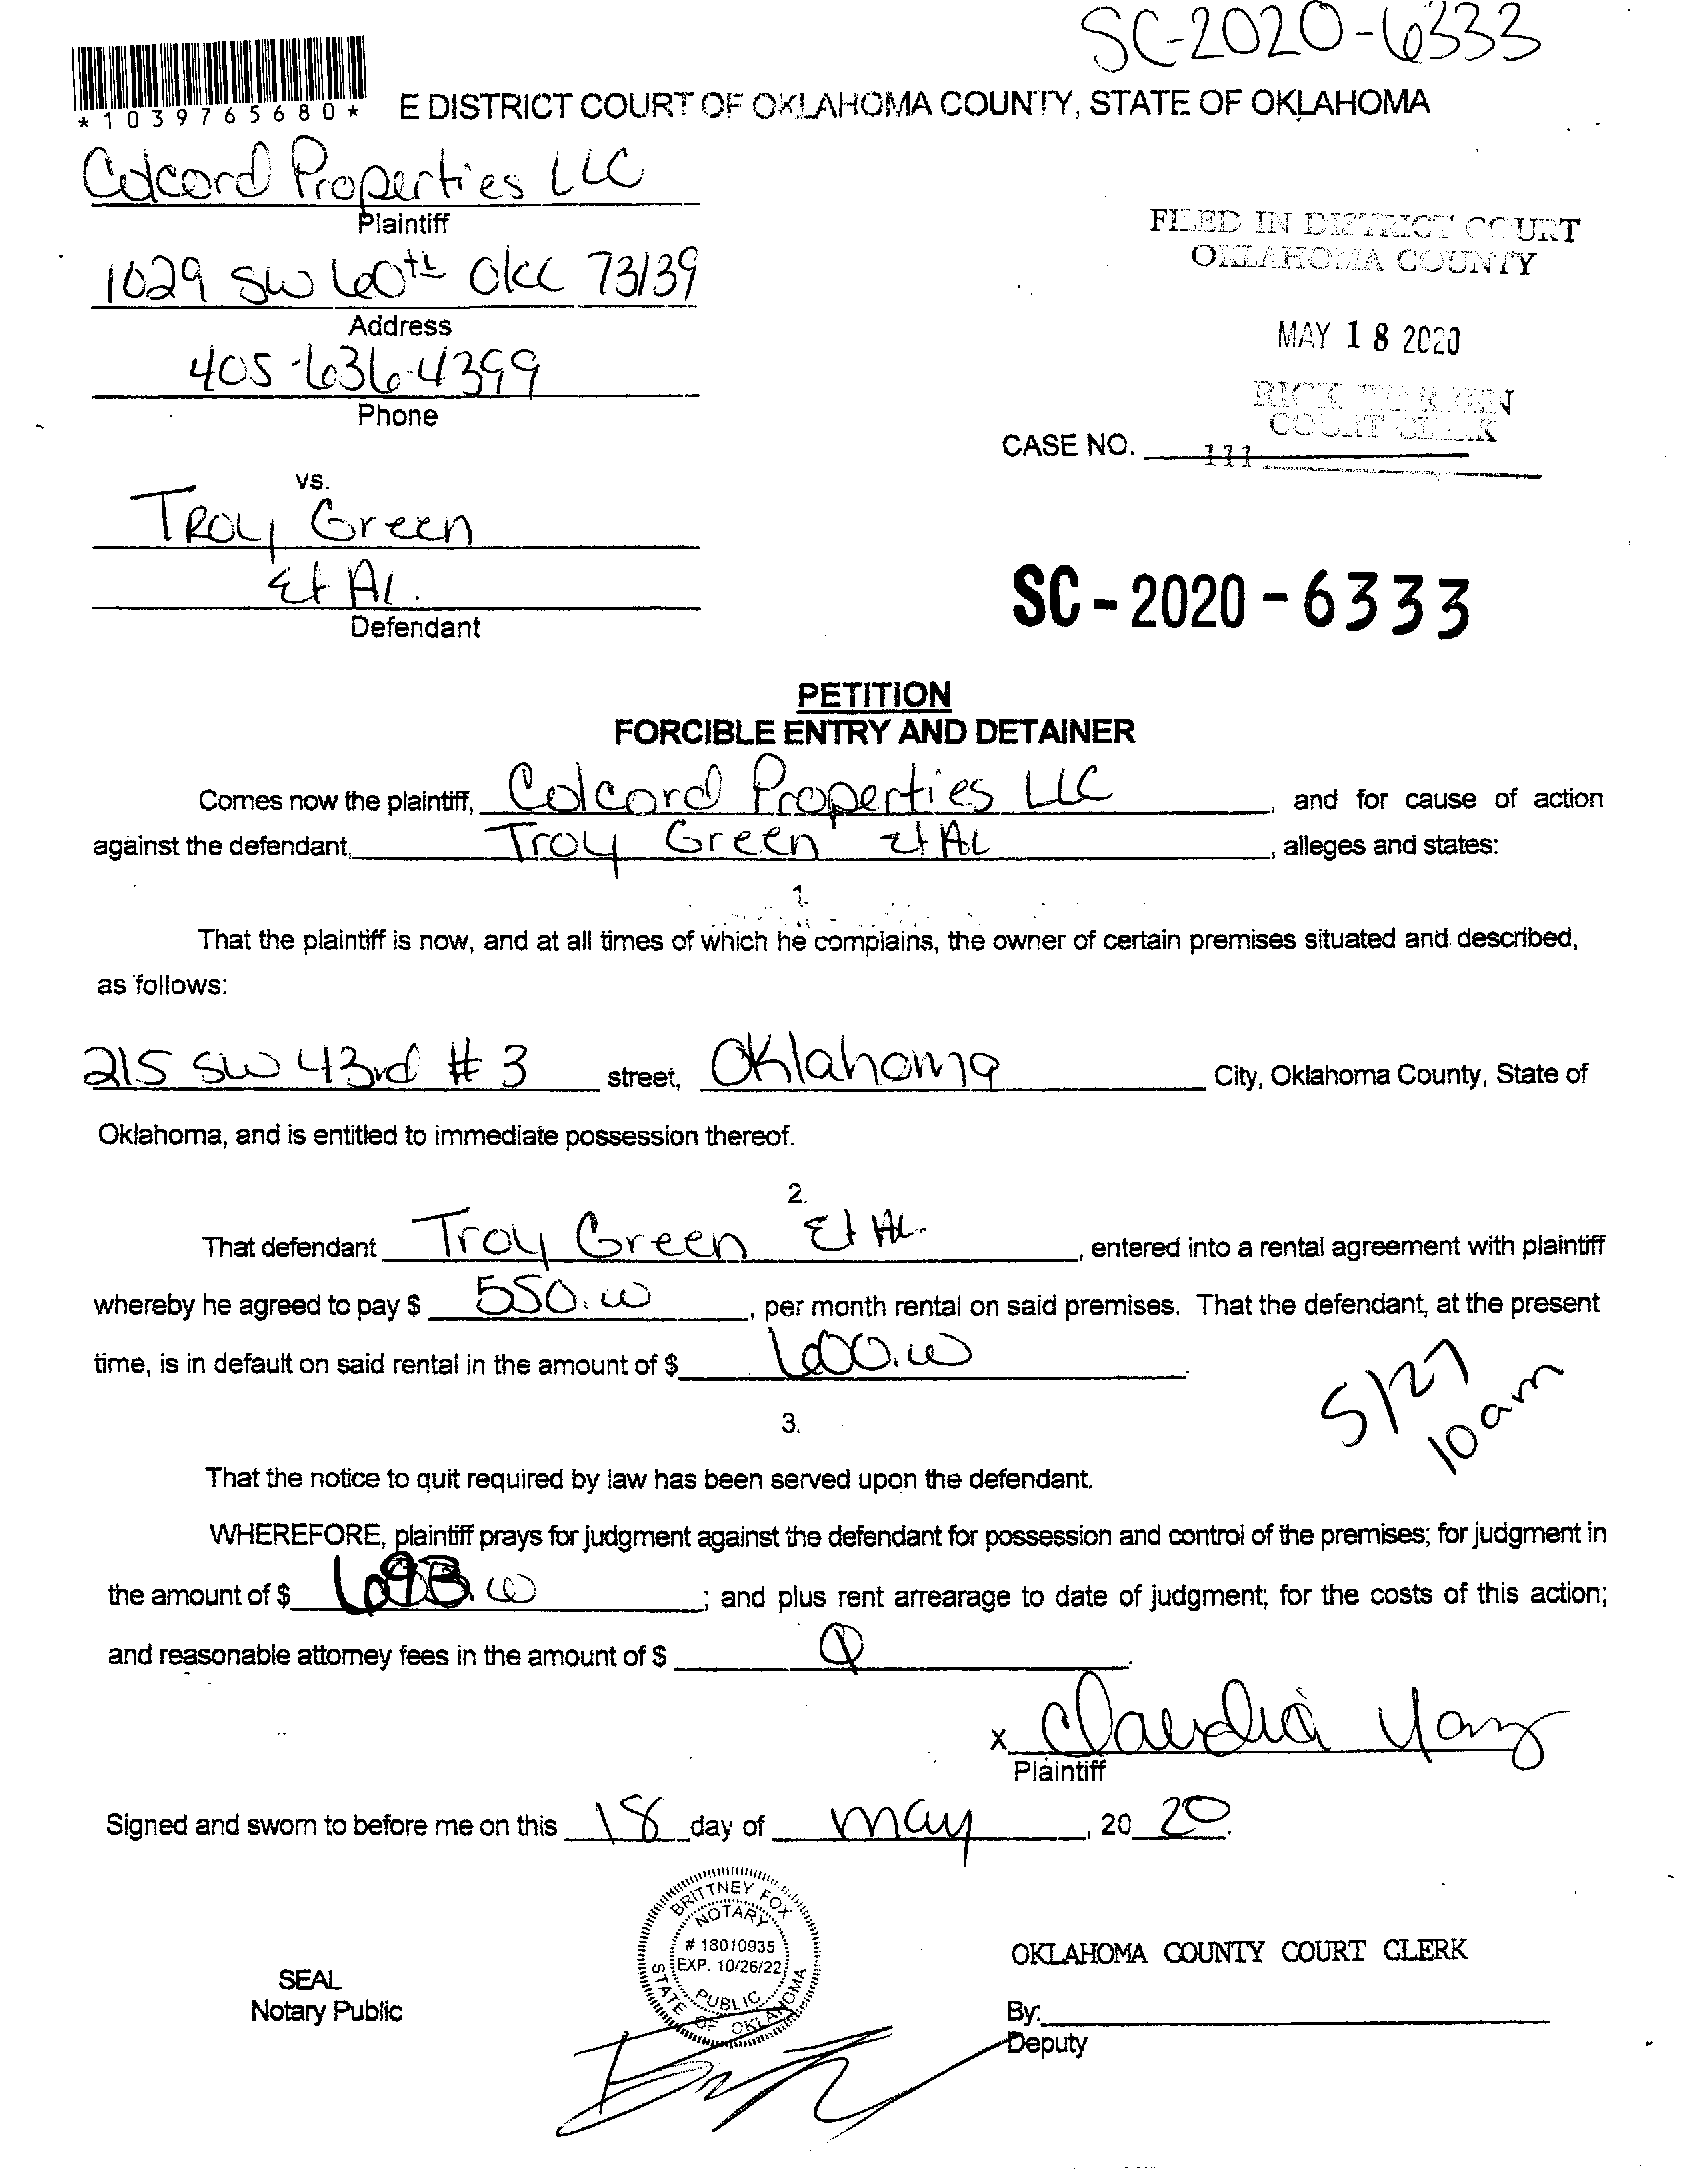 SC-2020-6333
*1039765680*
E DISTRICT COURT OF OKLAHOMA COUNTY, STATE OF OKLAHOMA
Colcord Properties LLC
Plaintiff
FILED IN DISTRICT COURT
OKLAHOMA COUNTY
1029 SW 60th OKC 73139
Address
MAY 18 2020
405-636-4399
Phone
RICK WARREN
COURT CLERK
CASE NO.
111
vs.
Troy Green
Et Al.
Defendant
SC-2020-6333
PETITION
FORCIBLE ENTRY AND DETAINER
Comes now the plaintiff, Colcord Properties LLC, and for cause of action
against the defendant, Troy Green et AL, alleges and states:
1.
That the plaintiff is now, and at all times of which he complains, the owner of certain premises situated and described,
as follows:
215 SW 43rd # 3 street, Oklahoma City, Oklahoma County, State of
Oklahoma, and is entitled to immediate possession thereof.
2.
That defendant Troy Green Et AL., entered into a rental agreement with plaintiff
whereby he agreed to pay $ 550.00, per month rental on said premises. That the defendant, at the present
time, is in default on said rental in the amount of $ 600.00.
5/27
10am
3.
That the notice to quit required by law has been served upon the defendant.
WHEREFORE, plaintiff prays for judgment against the defendant for possession and control of the premises; for judgment in
the amount of $ .00; and plus rent arrearage to date of judgment; for the costs of this action;
and reasonable attorney fees in the amount of $
x Claudia
Plaintiff
Signed and sworn to before me on this 18 day of may, 20 20.
BRITTNEY FOX
NOTARY
# 18010935
EXP. 10/26/22
PUBLIC
STATE OF OKLAHOMA
OKLAHOMA COUNTY COURT CLERK
SEAL
Notary Public
By:
Deputy